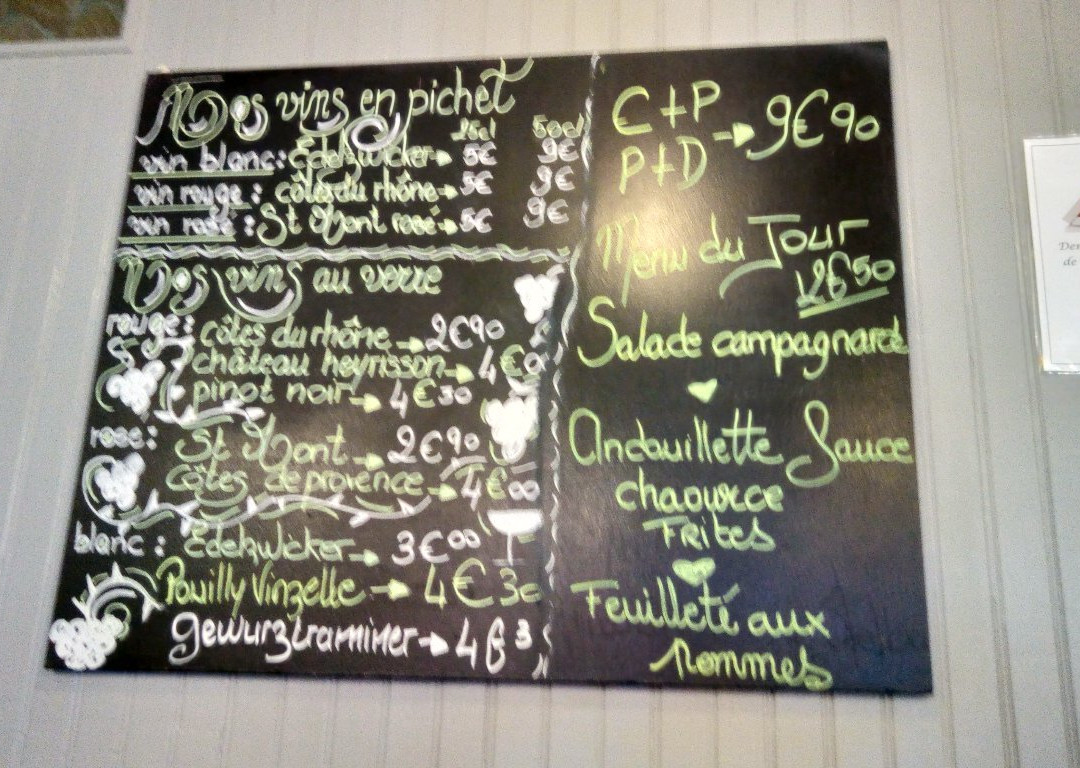 Nos vins en pichet
25cl 50cl
vin blanc: Edelzwicker 5€ 9€
vin rouge: côtes du rhône 5€ 9€
vin rosé: St Mont rosé 5€ 9€
Nos vins au verre
rouge: côtes du rhône 2€90
château heyrisson 4€00
pinot noir 4€30
rosé: St Mont 2€90
Côtes de provence 4€00
blanc: Edelzwicker 3€00
Pouilly Vinzelle 4€30
Gewurztraminer 4€3
C+P
P+D 9€90
Menu du Jour
12€50
Salade campagnarde
Andouillette Sauce
chaource
Frites
Feuilleté aux
Pommes